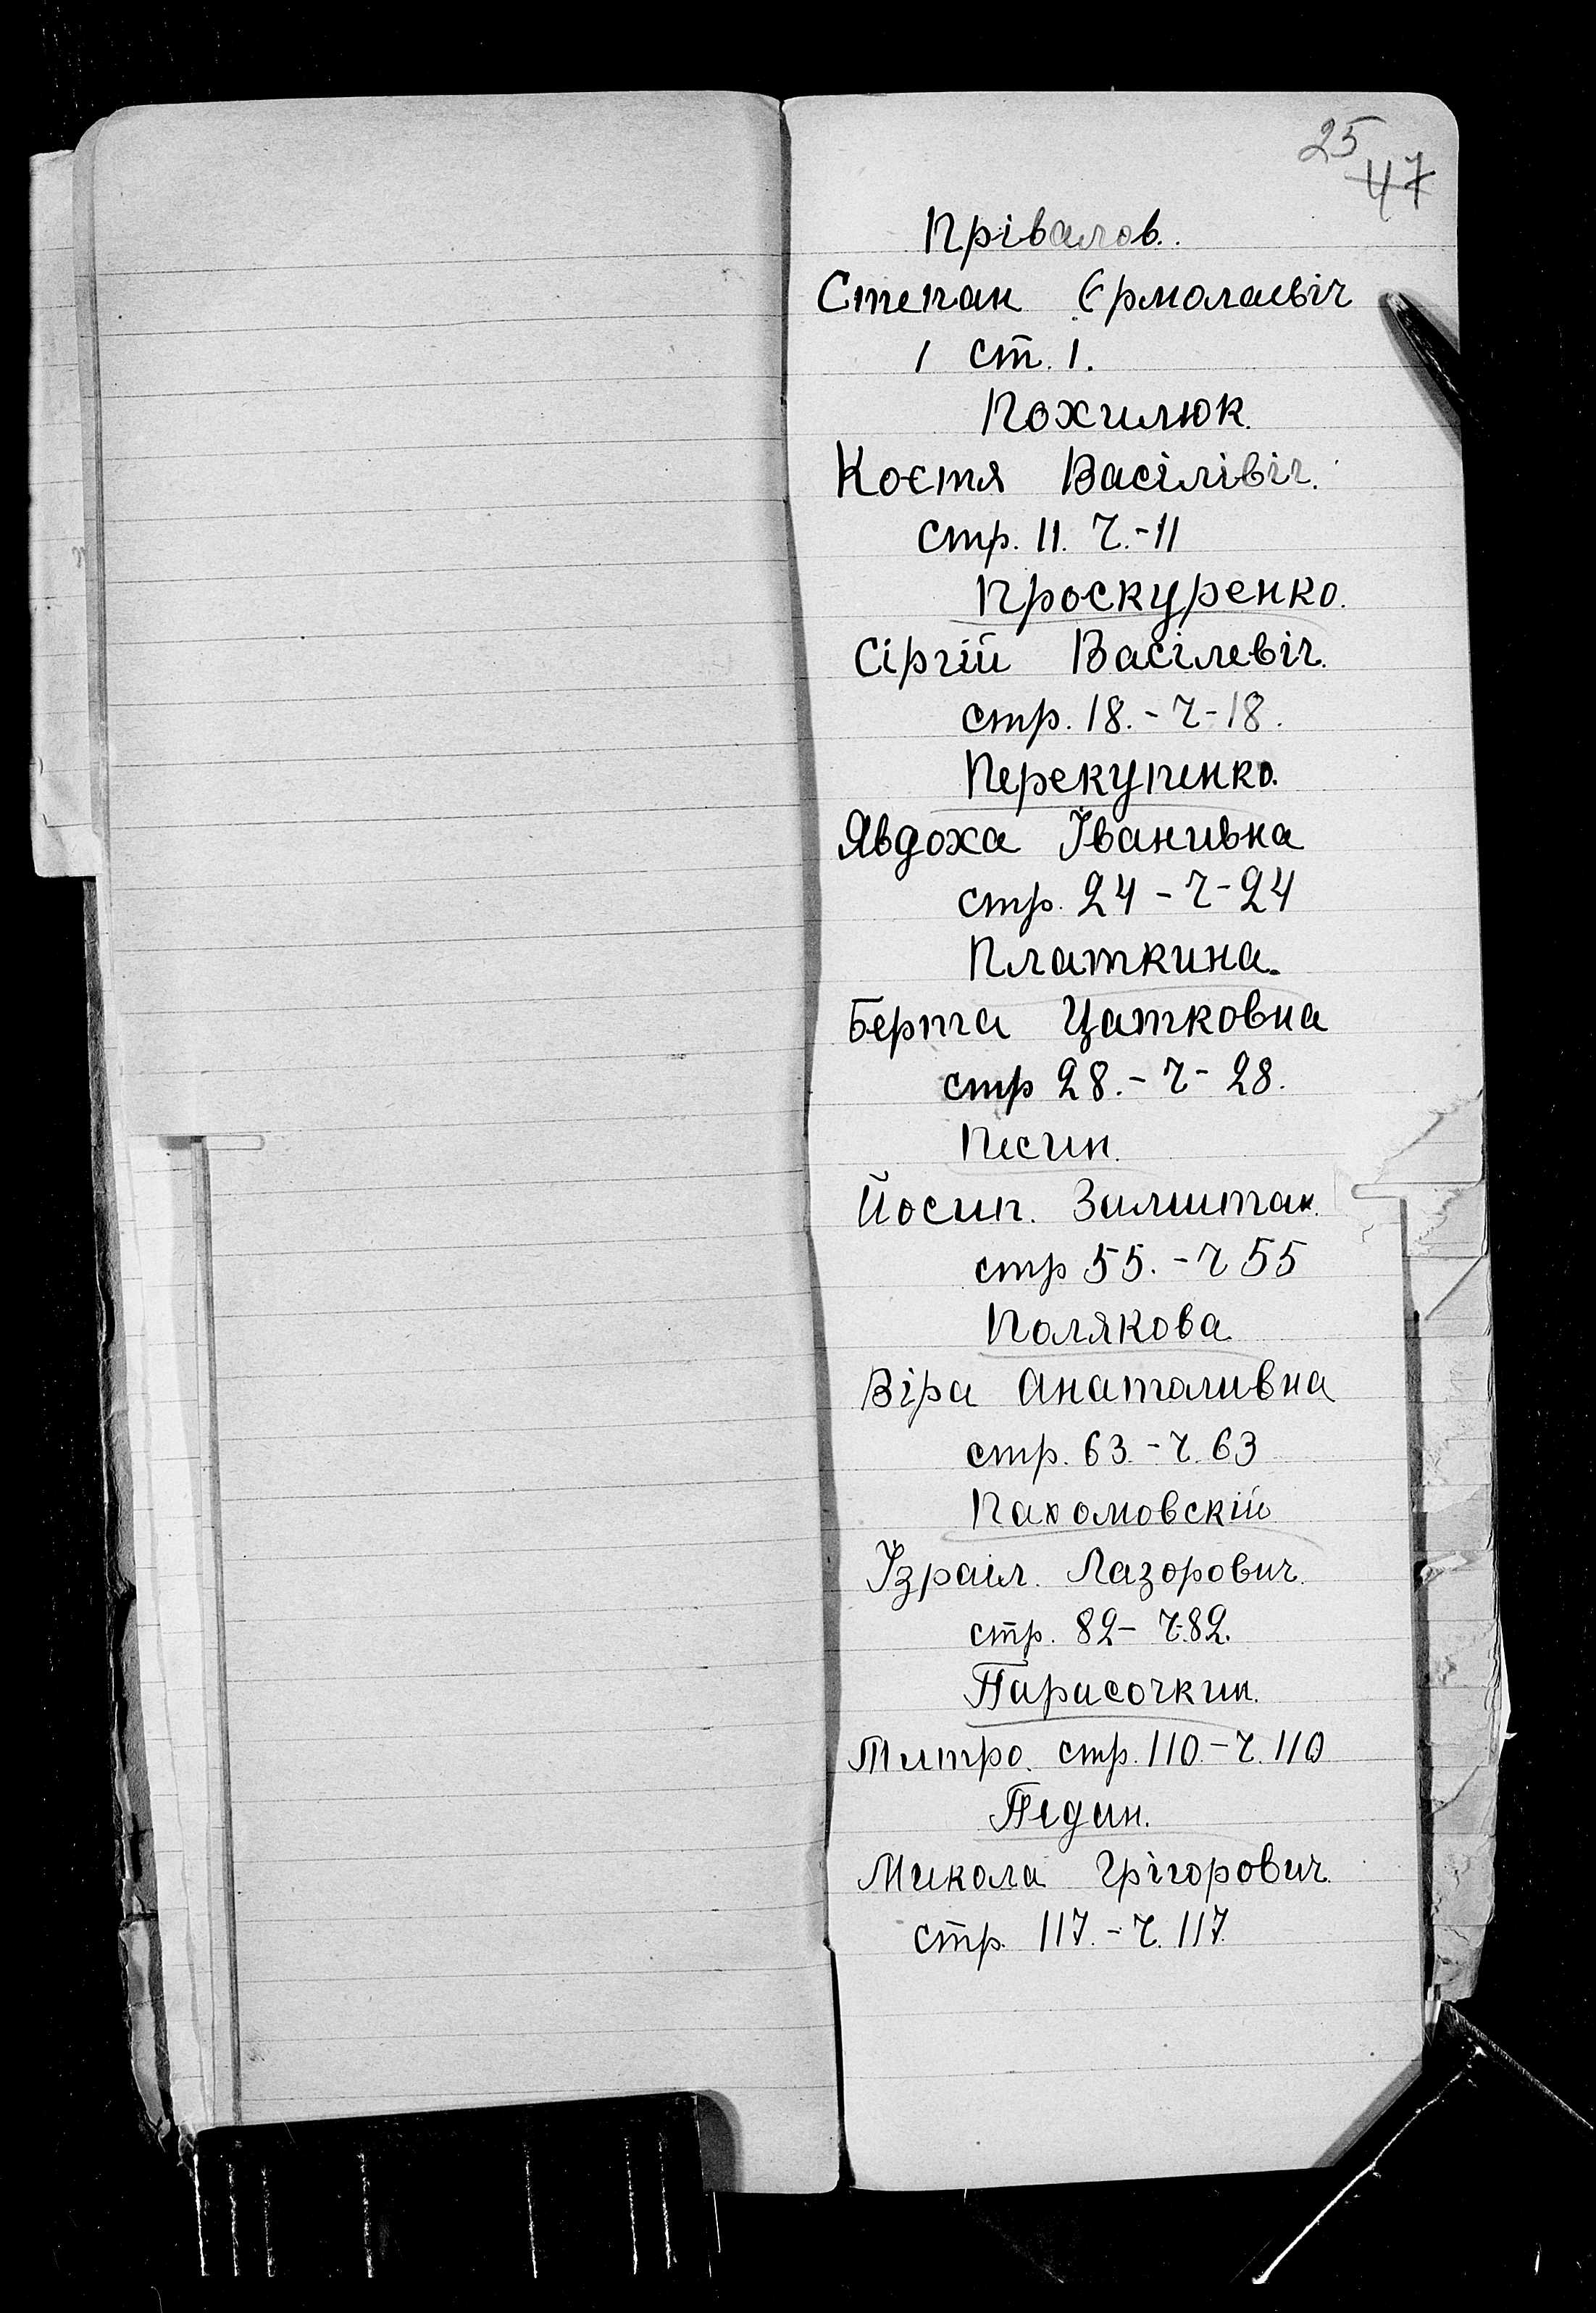 25
47
Прівалов.
Степан Єрмолаевіч
1 ст. 1.
Похилюк.
Костя Васілівіч.
стр. 11. Ч.-11
Проскуренко.
Сіргій Васілевіч.
стр. 18.-Ч-18.
Перекупенко.
Явдоха Іванивна
стр. 24-Ч-24
Платкина.
Берта Цатковна
стр 28.-Ч-28.
Песин.
Йосип.
стр 55.-Ч 55
Полякова
Віра Анатоливна
стр. 63.-Ч. 63
Пахомовскій
Ізраіл. Лазорович.
стр. 82-Ч-82.
Парасочкин.
Митро. стр. 110-Ч. 110
Педин.
Микола Грігорович.
стр. 117.-Ч. 117.